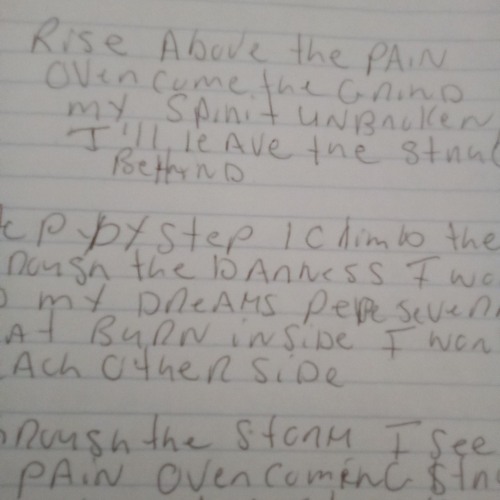 Rise Above the PAiN
OVERCome the GRIND
my SPIRit UNBROKEN
I'll leAVE the STRU
BehIND
EP by step I Climb the
ROUGH the DARNESS I WO
my DREAMS PERSEVER
AT BURN iNSiDe I WON
EACH OtheR SiDe
ROUGH the STORM I See
PAiN OVERCOMING STR